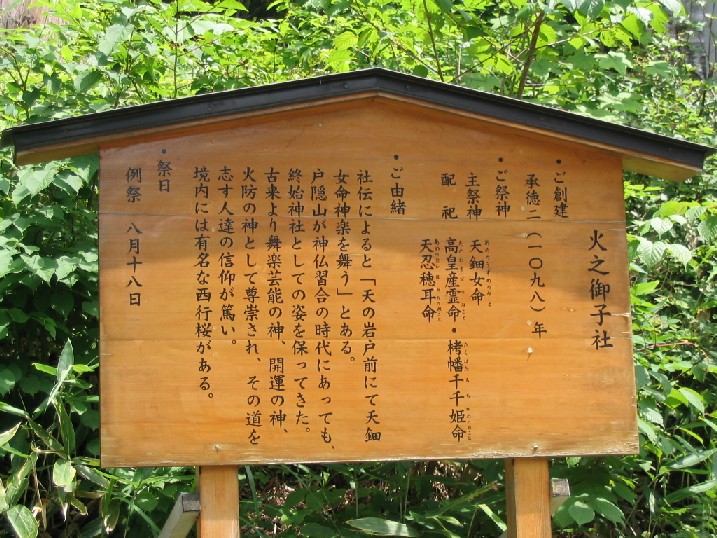 火之御子社
・ご創建
承徳二(一〇九八)年
・ご祭神
主祭神 天鈿女命
配祀 高皇産霊命・栲幡千千姫命
天忍穂耳命
・ご由緒
社伝によると「天の岩戸前にて天鈿
女命神楽を舞う」とある。
戸隠山が神仏習合の時代にあっても、
終始神社としての姿を保ってきた。
古来より舞楽芸能の神、開運の神、
火防の神として尊崇され、その道を
志す人達の信仰が篤い。
境内には有名な西行桜がある。
・祭日
例祭 八月十八日